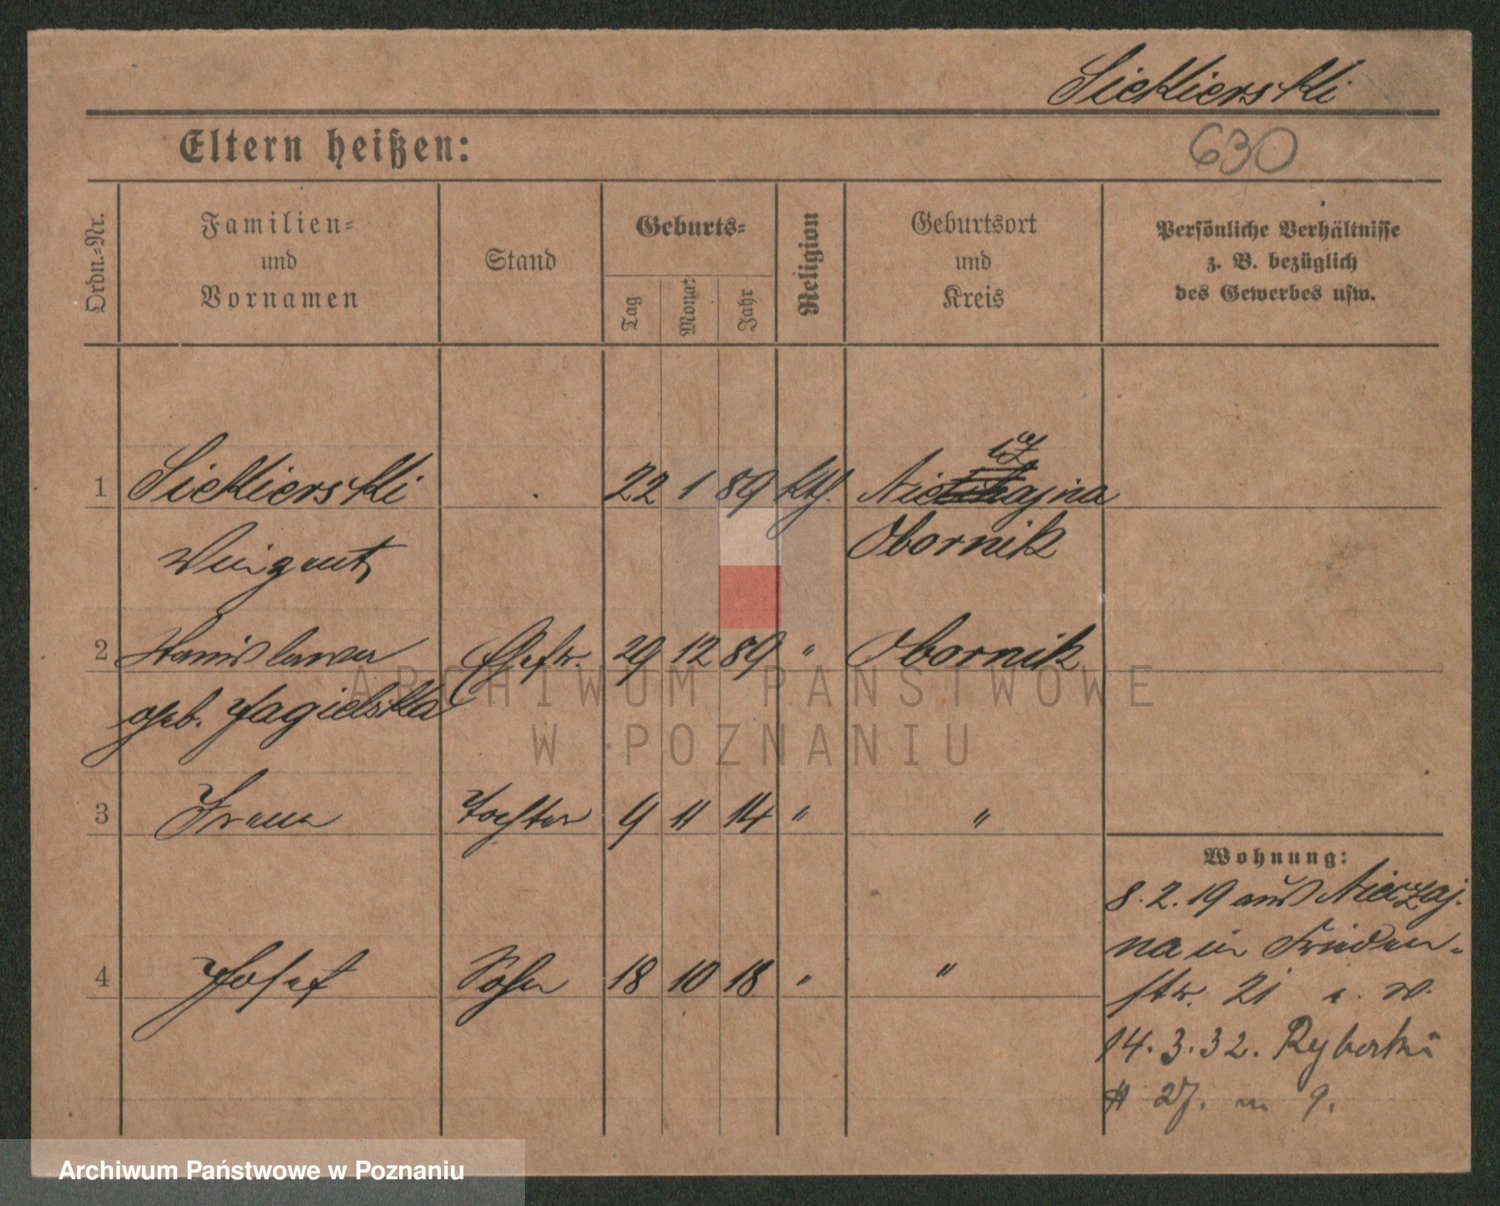 Siekierski
Eltern heißen:
630
Ordn.-Nr.
Familien-
und
Vornamen
Stand
Geburts-
Tag
Monat
Jahr
Religion
Geburtsort
und
Kreis
Persönliche Verhältnisse
z. B. bezüglich
des Gewerbes usw.
cz
1 Siekierski 22 1 89 kth. Nieczajna
Obornik
2 Stanislawa Ehefr. 29 12 89 " Obornik
geb. Jagielska
3 Irena Tochter 9 11 14 " "
Wohnung:
8.2.19 aus Nieczaj-
na in Frieden-
4 Josef Sohn 18 10 18 " "
str. 21 a. w.
14.3.32. Rybaki
27. m 9.
ARCHIWUM PAŃSTWOWE
W POZNANIU
Archiwum Państwowe w Poznaniu